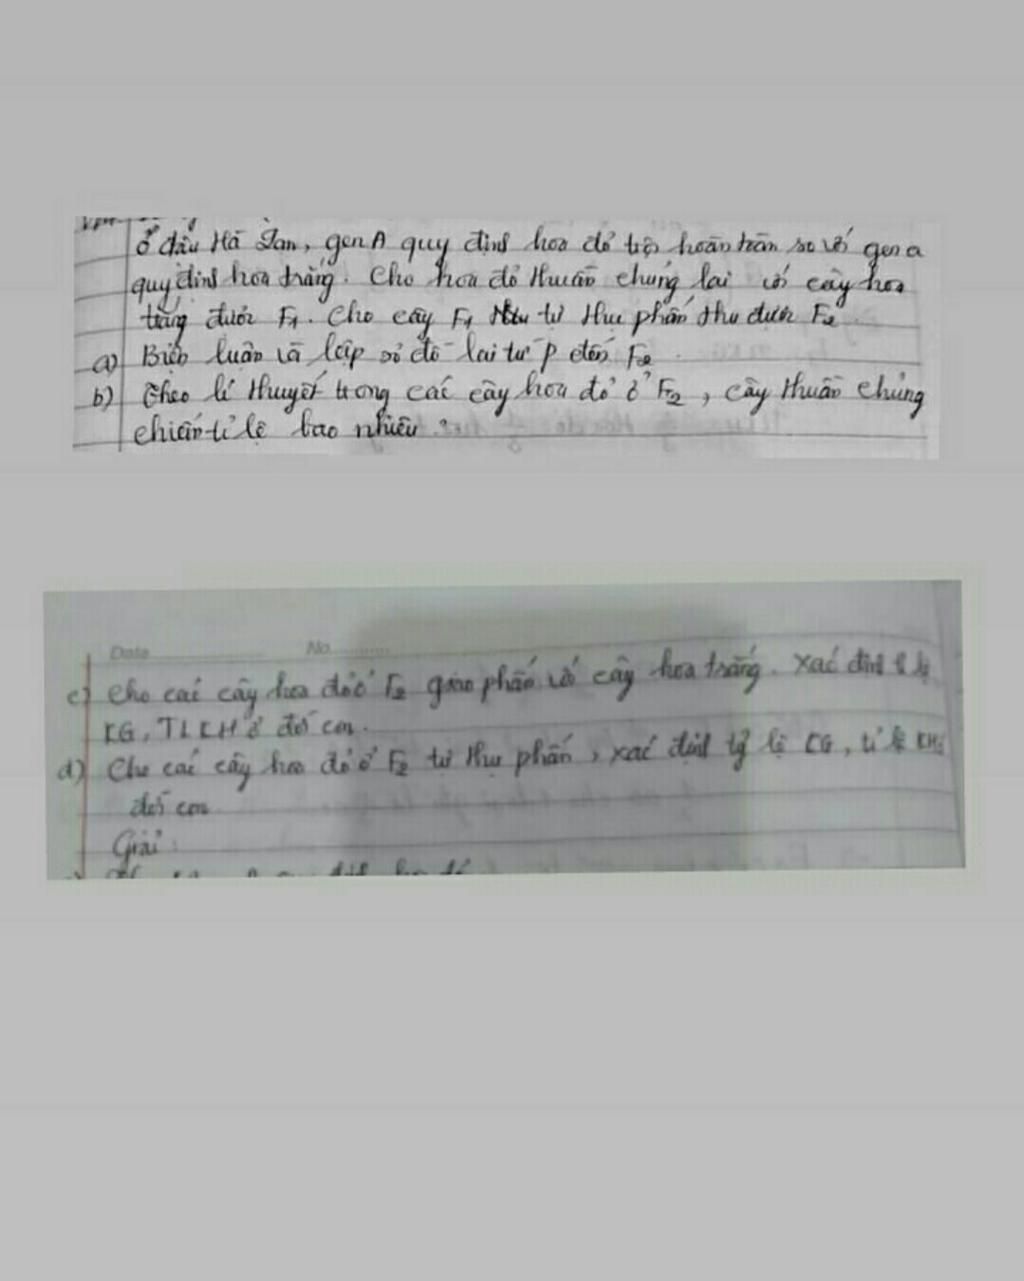 ở đậu Hà Lan, gen A quy định hoa đỏ trội hoàn toàn so với gen a
quy định hoa trắng. Cho hoa đỏ thuần chủng lai với cây hoa
trắng được F1. Cho cây F1 tự thụ phấn thu được F2
a) Biện luận và lập sơ đồ lai từ P đến F2.
b) Theo lí thuyết trong các cây hoa đỏ ở F2, cây thuần chủng
chiếm tỉ lệ bao nhiêu?
Date No.
c) Cho các cây hoa đỏ ở F2 giao phấn với cây hoa trắng. Xác định tỉ lệ
KG, TLKH ở đời con.
d) Cho các cây hoa đỏ ở F2 tự thụ phấn, xác định tỷ lệ KG, tỉ lệ KH ở
đời con
Giải: